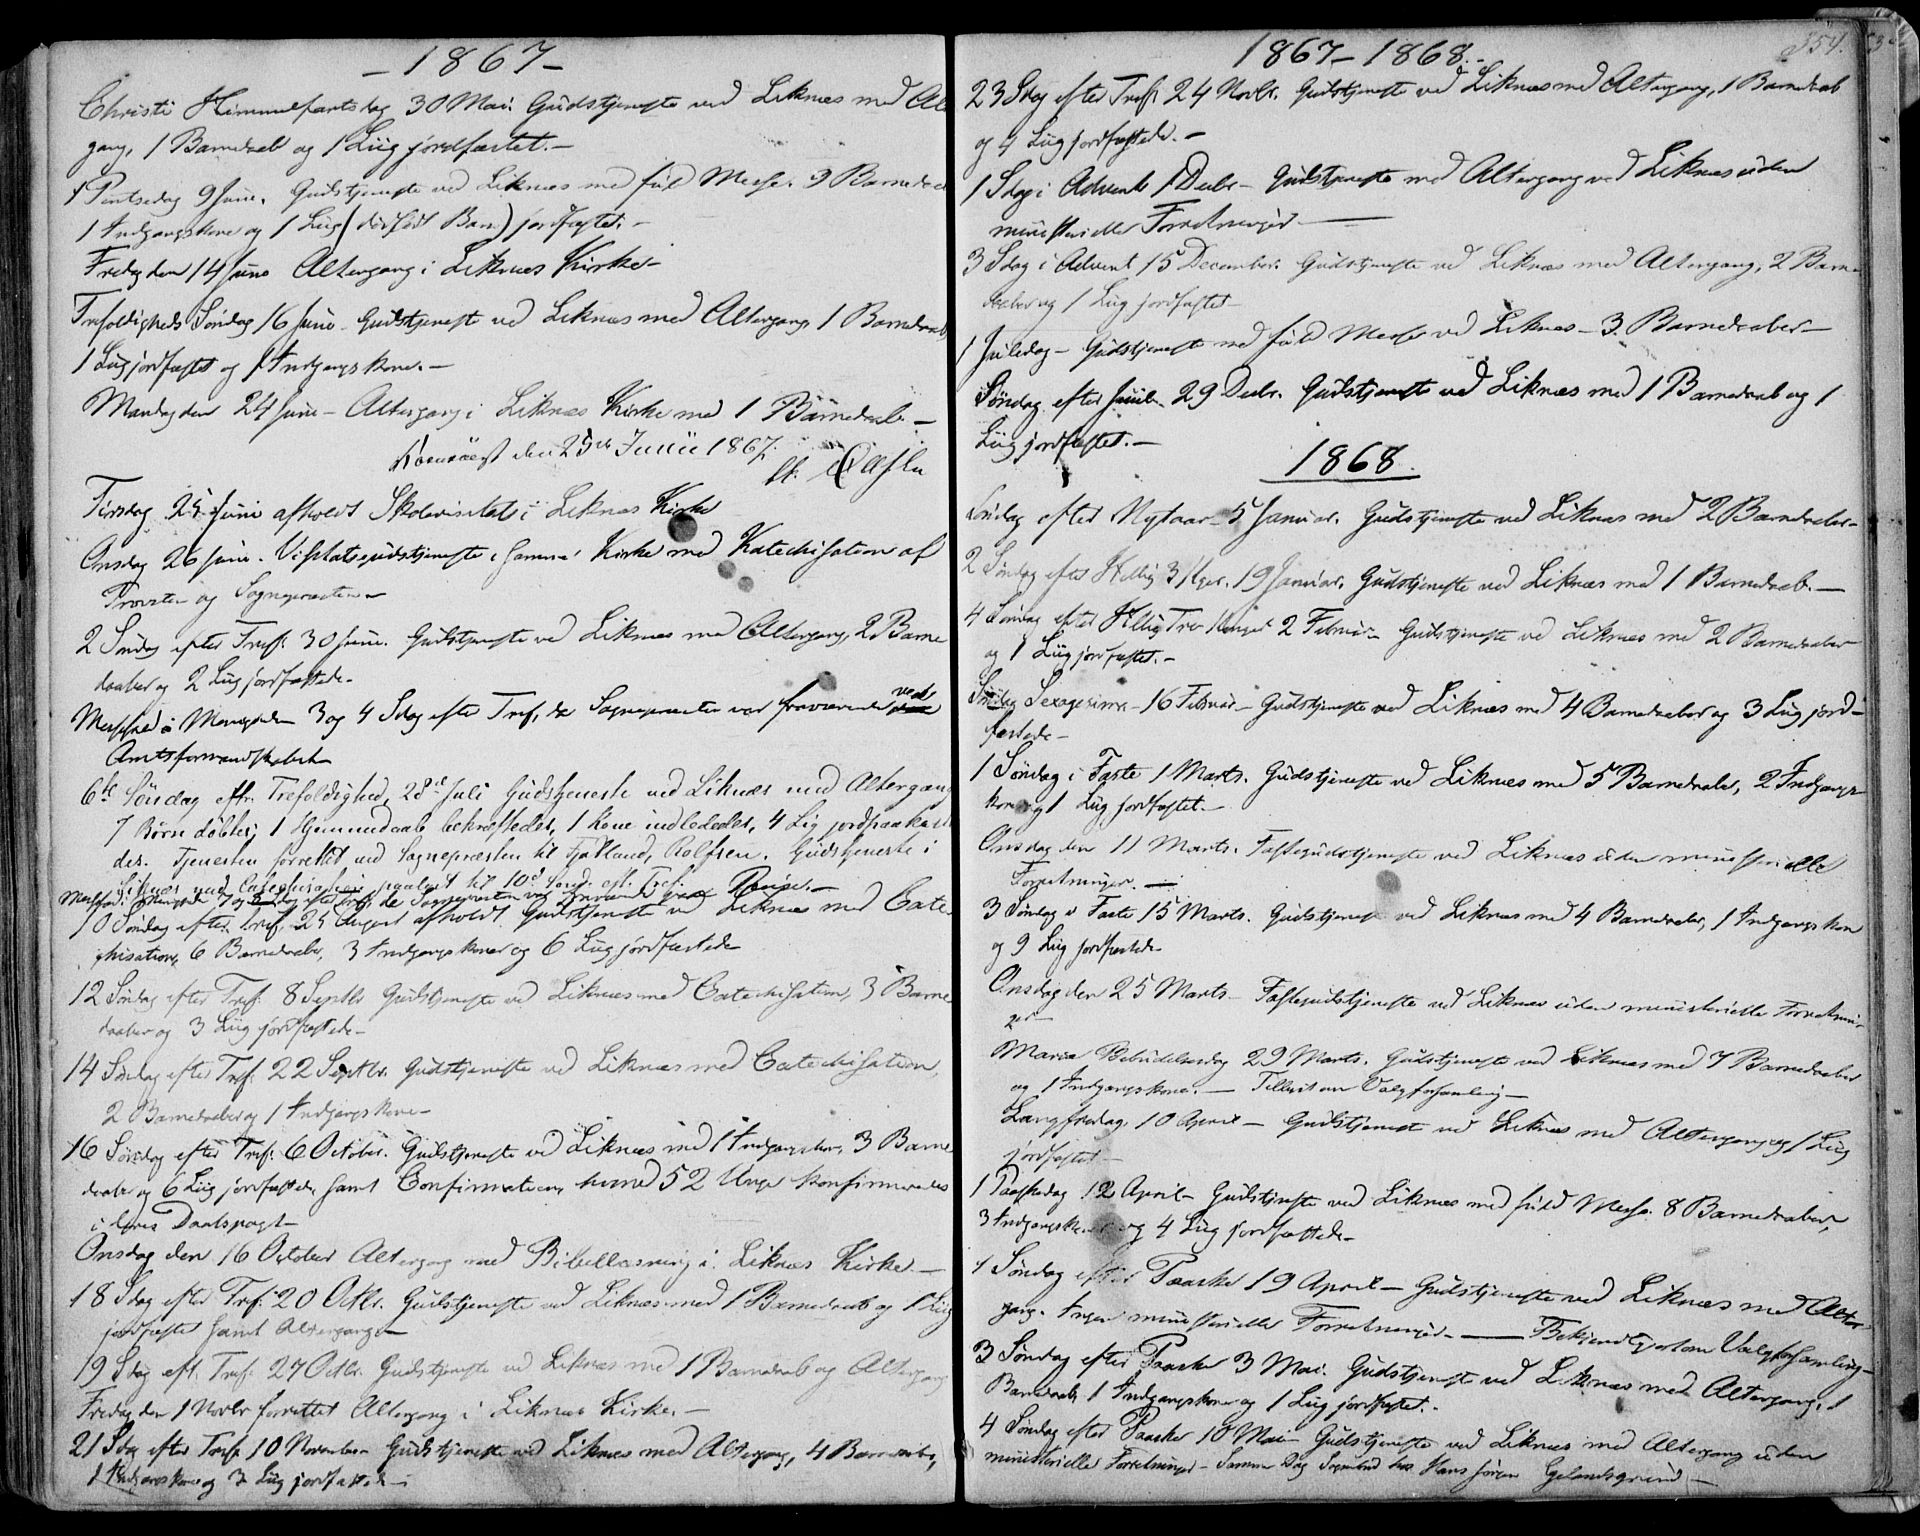 - 1867 -
Christi Himmelfartsdag 30 Mai. Gudstjeneste ved Liknes med Al
gang, 1 Barnedaab og 1 Liig jordfæstet. -
1 Pintsedag 9 Juni. Gudstjeneste ved Liknes med fuld Messe. 3 Barneda
1 Indgangskone og 1 Liig (dødfødt Barn) jordfæstet. -
Fredag den 14 Juni Altergang i Liknes Kirke -
Trefoldigheds Søndag 16 Juni - Gudstjeneste ved Liknes med Altergang 1 Barnedaab,
1 Liig jordfæstet og 1 Indgangskone. -
Mandag den 24 Juni - Altergang i Liknes Kirke med 1 Barnedaab. -
den 25de Junii 1867.
Tirsdag 25 Juni afholdt Skolevisitats i Liknes Kirke
Onsdag 26 Juni. Visitatsgudstjeneste i samme Kirke med Katechisation af
Provsten og Sognepræsten -
2 Søndag efter Tref. 30 Juni. Gudstjeneste ved Liknes med Altergang, 2 Barne
daaber og 2 Liig jordfæstede. -
Messefald i Menigheden 3 og 4 Sdag efter Tref, da Sognepræsten var fraværende ved
Amtsformandskabet
6te Søndag eftr. Trefoldighed, 28de Juli Gudstjeneste ved Liknæs med Altergang
7 Børn døbte; 1 Hjemmedaab bekræftedes, 1 Kone indlededes, 4 Lig jordpaakaste
des. Tjenesten forrettet ved Sognepræsten til Fjotland, Rolfsen. Gudstjeneste i
Liknæs med Catechisation paalyst til 10de Sønd. eft. Tref.
Messefald i Menigheden 7 og dag efter Tref, da Sognepræsten var fraværende paa Reise. -
10 Søndag efter Tref, 25 August afholdt Gudstjeneste ved Liknes med Cate-
chisation, 6 Barnedaaber, 3 Indgangskoner og 6 Liig jordfæstede
12 Søndag efter Tref: 8 Septbr Gudstjeneste ved Liknes med Catechisation, 3 Barne
daaber og 3 Liig jordfæstede -
14 Søndag efter Tref: 22 Septbr. Gudstjeneste ved Liknes med Catechisation,
2 Barnedaaber og 1 Indgangskone -
16 Søndag efter Tref: 6 October. Gudstjeneste ved Liknes med 1 Indgangskone, 3 Barne
daaber og 6 Liig jordfæstede, samt Confirmation, hvorved 52 Unge konfirmeredes
i deres Daabspagt -
Onsdag den 16 October Altergang med Bibellæsning i Liknes Kirke. -
18 Sdag efter Tref: 20 Octbr. Gudstjeneste ved Liknes med 1 Barnedaab og 1 Liig
jordfæstet samt Altergang. -
19 Sdag eft. Tref: 27 Octbr. Gudstjeneste ved Liknes med 1 Barnedaab og Altergang
Fredag den 1 Novbr forrettet Altergang i Liknes Kirke. -
21 Sdag efter Tref 10 November Gudstjeneste ved Liknes med Altergang, 4 Barnedaaber,
1 Indgangskone og 3 Liig jordfæstede -
1867 - 1868. -
354.
23 Sdag efter Tref: 24 Novbr. Gudstjeneste ved Liknes med Altergang, 1 Barnedaab
og 4 Liig jordfæstede. -
1 Sdag i Advent 1 Decbr - Gudstjeneste med Altergang ved Liknes uden
ministerielle Forretninger. -
3 Sdag i Advent 15 December. Gudstjeneste ved Liknes med Altergang, 2 Barne
daaber og 1 Liig jordfæstet -
1 Juledag - Gudstjeneste med fuld Messe ved Liknes - 3 Barnedaaber -
Søndag efter Juul. 29 Decbr. Gudstjeneste ved Liknes med 1 Barnedaab og 1
Liig jordfæstet. -
1868.
Søndag efter Nytaar 5 Januar. Gudstjeneste ved Liknes med 2 Barnedaaber -
2 Søndag efter Hellig 3 Kger. 19 Januar. Gudstjeneste ved Liknes med 1 Barnedaab. -
4 Søndag efter Hellig Tre Konger 2 Februar - Gudstjeneste ved Liknes med 2 Barnedaaber
og 1 Liig jordfæstet. -
Søndag Sexagesima - 16 Februar - Gudstjeneste ved Liknes med 4 Barnedaaber og 3 Liig jord-
fæstede -
1 Søndag i Faste 1 Marts. Gudstjeneste ved Liknes med 5 Barnedaaber, 2 Indgangs-
koner og 1 Liig jordfæstet. -
Onsdag den 11 Marts. Fastegudstjeneste ved Liknes uden ministerielle
Forretninger. -
3 Søndag i Faste 15 Marts. Gudstjeneste ved Liknes med 4 Barnedaaber, 1 Indgangskone
og 9 Liig jordfæstede -
Onsdag den 25 Marts - Fastegudstjeneste ved Liknes uden ministerielle Forretnin-
ger -
Maria Bebudelsesdag 29 Marts. Gudstjeneste ved Liknes med 7 Barnedaaber
og 1 Indgangskone. - Tillyst om Valgforsamling -
Langfredag, 10 April - Gudstjeneste ved Liknes med Altergang og 1 Liig
jordfæstet -
1 Paaskedag 12 April - Gudstjeneste ved Liknes med fuld Messe. 8 Barnedaaber,
3 Indgangskoner og 4 Liig jordfæstede -
1 Søndag efter Paaske 19 April - Gudstjeneste ved Liknes med Alter-
gang. Ingen ministerielle Forretninger. - Bekjendtgjort om Valgforsamling -
3 Søndag efter Paaske 3 Mai. Gudstjeneste ved Liknes med Altergang, 1
Barnedaab, 1 Indgangskone og 1 Liig jordfæstet. -
4 Søndag efter Paaske 10 Mai - Gudstjeneste ved Liknes med Altergang uden
ministerielle Forretninger - Samme Dag hos Hans Jørgen -